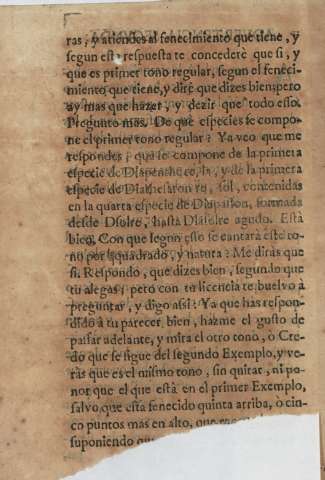 ras, y atiendes al fenecimiento que tiene, y
segun esta respuesta te concederè que si, y
que es primer tono regular, segun el feneci-
miento que tiene, y dirè que dizes bien; pero
ay mas que hazer, y dezir que todo esso.
Pregunto mas. De què especies se compo-
ne el primer tono regular? Ya veo que me
respondes: que se compone de la primera
especie de Diapenthe re, la, y de la primera
especie de Diathesaron re, sol, contenidas
en la quarta especie de Diapason, formada
desde Dsolre, hasta Dlasolre agudo. Està
bien. Con que segun esso se cantarà este to-
no por bquadrado, y natura? Me diràs que
si. Respondo, que dizes bien, segun lo que
tu alegas; pero con tu licencia te buelvo à
preguntar, y digo assi: Ya que has respon-
dido à tu parecer bien, hazme el gusto de
passar adelante, y mira el otro tono, ò Cre-
do que se sigue del segundo Exemplo, y ve-
ràs que es el mismo tono, sin quitar, ni po-
nor que el que està en el primer Exemplo,
salvo que està fenecido quinta arriba, ò cin-
co puntos mas en alto, que
suponiendo que